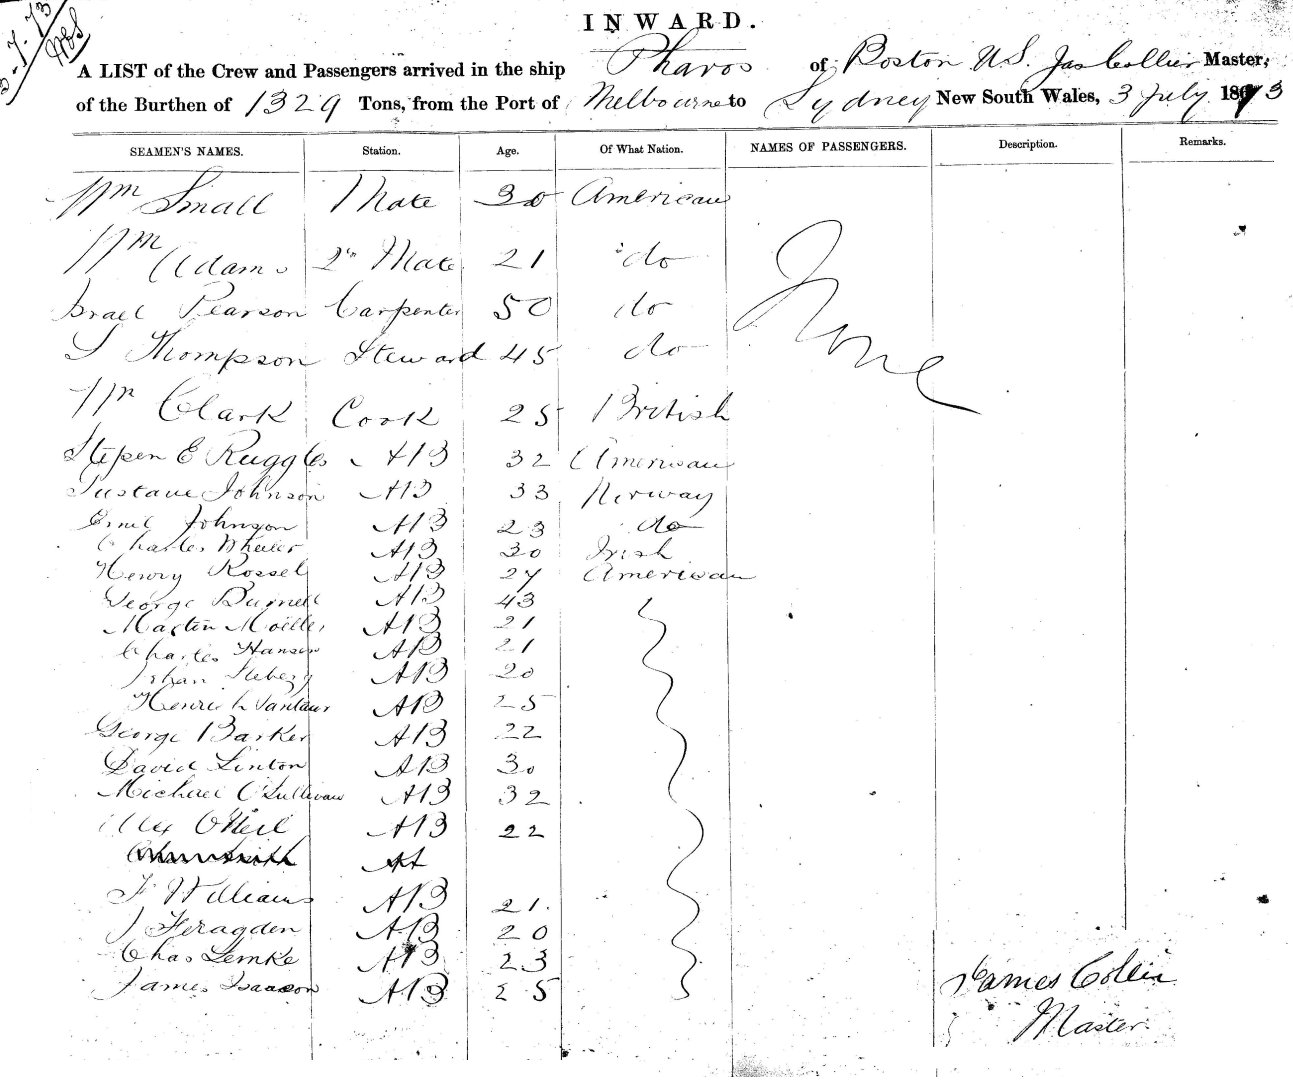 3.7.73
INWARD.
A LIST of the Crew and Passengers arrived in the ship Pharos of Boston U.S. Jas Collier Master,
of the Burthen of 1329 Tons, from the Port of Melbourne to Sydney New South Wales, 3 July 1873
SEAMEN'S NAMES. Station. Age. Of What Nation. NAMES OF PASSENGERS. Description. Remarks.
Wm Small Mate 30 American
Wm Adams 2nd Mate 21 do
Israel Pearson Carpenter 50 do
S Thompson Steward 45 do
None
Wm Clark Cook 25 British
Stepen E Ruggles AB 32 American
Gustave Johnson AB 33 Norway
Emil Johnson AB 23 do
Charles Wheeler AB 30 Irish
Henry Rossel AB 27 American
George Burnell AB 43
Martin Moëller AB 21
Charles Hanson AB 21
Johan AB 20
Henrich AB 25
George Barker AB 22
David Linton AB 30
Michael O'Sullivan AB 32
Alex O'Neil AB 22
F Williams AB 21.
J Feragden AB 20
Chas Lemke AB 23
James Isaacson AB 25
James Collier
Master